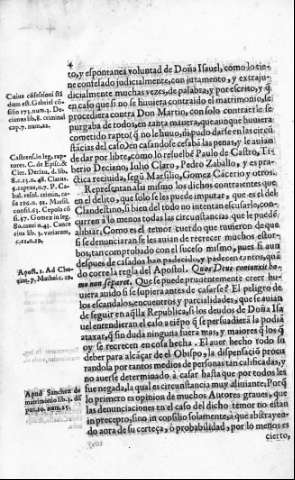 4
to, y espontanea voluntad de Doña Isauel, como lo tie-
ne confesado judicialmente, con juramento, y extraju-
dicialmente muchas vezes, de palabra, y por escrito, y q̃
en caso que si no se huuiera contraido el matrimonio, se
procediera contra Don Martin, con solo contraerle se
purgaba de todos, en tanta manera, que aun que huuiera
cometido raptoq̃ no le huuo,
sticias del caso. En casandose cesaba las penas, y le auian
de dar por libre, como lo resuelbe Paulo de Castro, Ti-
berio Deciano, Iulio Claro, Pedro Zaballo, y es pra-
ctica requida, segũ Marsilio, Gomez Gacerio y otros.
Representan asi mismo los dichos contraientes que
en el delito, que solo se les puede imputar, que es el del
Clandestino, si bien del todo no intentan escusarlo, con-
curren a lo menos todas las circunstancias que le puedẽ
alibiar. Como es el temor cuerdo que tuuieron de que
si se denunciaran se les auian de recrecer muchos estor-
bos, tan comprobado con el suceso mismo, pues si aun
despues de casados han padecido, y padecen tantos, quã
do corre la regla del Apostol. Quos Deus coniunxit ho-
mo non separet. Que se puede prudentemente creer hu-
uiera auido si se supiera antes de casarse? El peligro de
los escandalos, encuentros, y parcialidades, que se auian
de seguir en aq̃lla Republica, si los deudos de Doña Isa-
uel entendieran el caso a tiẽpo q̃ se persuadierã la podiã
atajar, q̃ sin duda ninguna fuera mas, y maiores q̃ los q̃
oy se recrecen en esta hecha. El auer hecho todo su
deber para alcãçar de el Obispo, la dispensaciõ
randola por tantos medios de personas tan calificadas, y
no auerse determinado à casar hasta que por todos les
fue negada, lo qual es circunstancia muy aliuiante, Porq̃
lo primero es opinion de muchos Autores graues, que
las denunciaciones en el caso del dicho temor no estan
in precepto, sino in consilio solamente, que abstrayen-
do aora de su certeça, ò probabilidad, por lo menos es
cierto,
Caius cõsesioni stã
dum est. Gabriel cõ
silio 173. num. 2. De-
cianus lib. 8. criminal
cap. 7. num. 22.
Castrens. in leg. rap-
tores. C. de Episc. &
Cler. Decian. d. lib.
8. c. 15. n. 48. Clarus.
§. raptus, n. 7. P. Ca-
bal. resol. crimin. ca-
su 292. n. 21. Marsil.
consil. 63. Cepola cõ
sil. 67. Gomez in leg.
80. num. 43. Canter.
lib. 3. variarum,
c. 12. n. 19.
Apost. 1. Ad Cho-
rint. 7. Matthei. 19.
Apud Sanchez de
matrimonio lib. 3. dis
put. 10. num. 15.